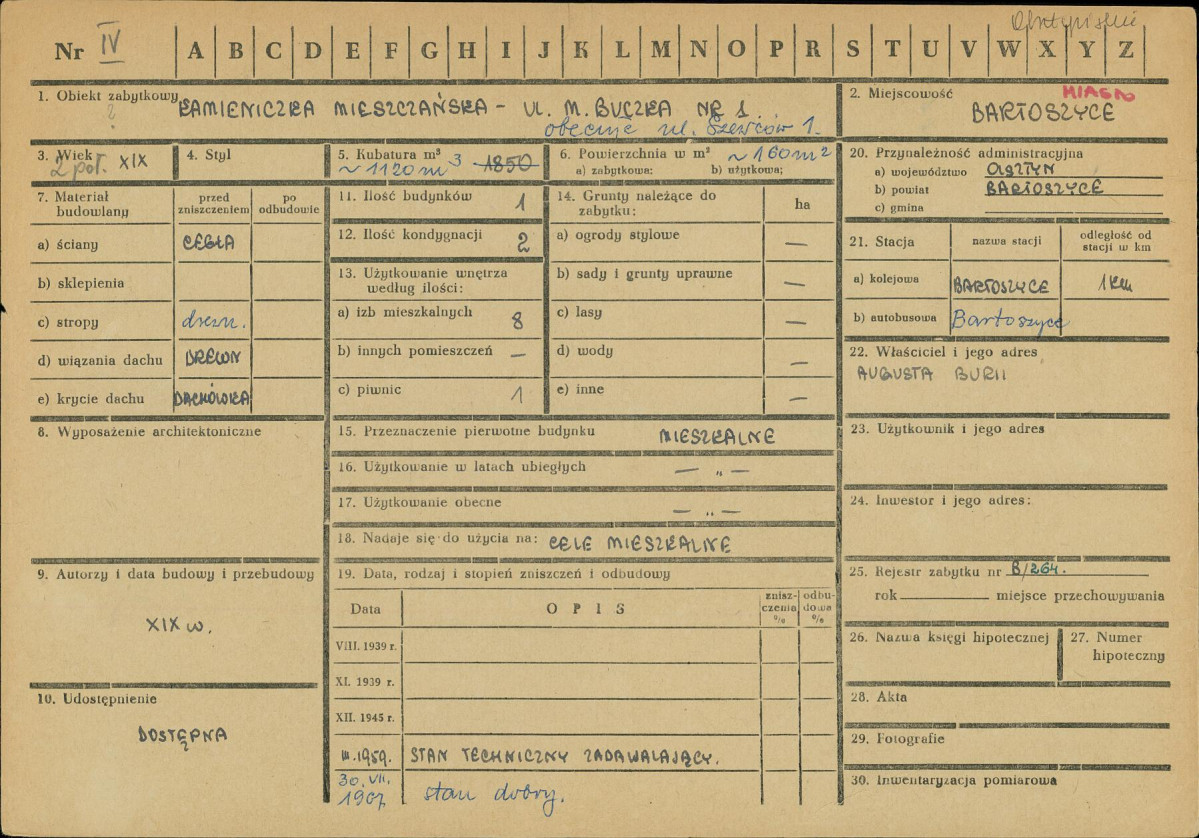 Nr IV A B C D E F G H I J K L M N O P R S T U V W X Y Z
1. Obiekt zabytkowy KAMIENICZKA MIESZCZAŃSKA - UL. M. BUCZKA NR 1.
?
obecnie ul. Szewców 1.
2. Miejscowość MIASTO
BARTOSZYCE
3. Wiek
2 poł. XIX
4. Styl
5. Kubatura m³ 1850
~ 1120 m³
6. Powierzchnia w m² ~ 160 m²
a) zabytkowa: b) użytkowa;
20. Przynależność administracyjna
a) województwo OLSZTYN
b) powiat BARTOSZYCE
c) gmina
7. Materiał budowlany
przed zniszczeniem
po odbudowie
a) ściany CEGŁA
b) sklepienia
c) stropy drewn.
d) wiązania dachu DREWN
e) krycie dachu DACHÓWKA
11. Ilość budynków 1
12. Ilość kondygnacji 2
13. Użytkowanie wnętrza
według ilości:
a) izb mieszkalnych 8
b) innych pomieszczeń —
c) piwnic 1
14. Grunty należące do
zabytku:
ha
a) ogrody stylowe —
b) sady i grunty uprawne —
c) lasy —
d) wody —
e) inne —
21. Stacja
nazwa stacji
odległość od
stacji w km
a) kolejowa BARTOSZYCE 1 km
b) autobusowa Bartoszyce
22. Właściciel i jego adres
AUGUSTA BURII
8. Wyposażenie architektoniczne
15. Przeznaczenie pierwotne budynku MIESZKALNE
16. Użytkowanie w latach ubiegłych — „ —
17. Użytkowanie obecne — „ —
18. Nadaje się do użycia na: CELE MIESZKALNE
23. Użytkownik i jego adres
24. Inwestor i jego adres:
9. Autorzy i data budowy i przebudowy
XIX w.
10. Udostępnienie
DOSTĘPNA
19. Data, rodzaj i stopień zniszczeń i odbudowy
Data OPIS
znisz-
czenia
%
odbu-
dowa
%
VIII. 1939 r.
XI. 1939 r.
XII. 1945 r.
III.1959. STAN TECHNICZNY ZADAWALAJĄCY.
30. VII.
1967 stan dobry.
25. Rejestr zabytku nr B/264.
rok miejsce przechowywania
26. Nazwa księgi hipotecznej
27. Numer
hipoteczny
28. Akta
29. Fotografie
30. Inwentaryzacja pomiarowa